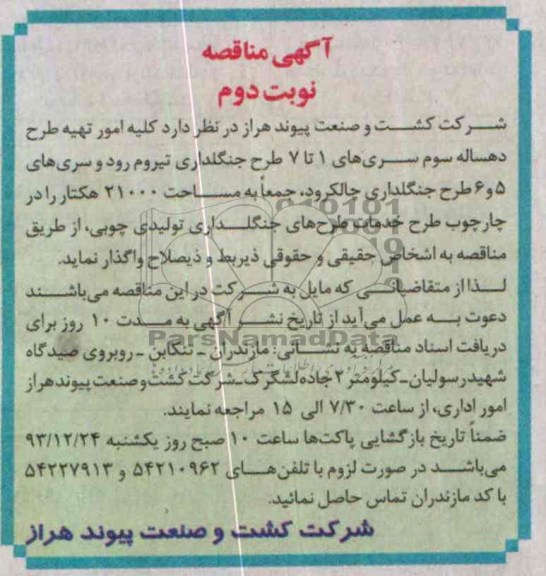 آگهی مناقصه
نوبت دوم
شرکت کشت و صنعت پیوند هراز در نظر دارد کلیه امور تهیه طرح
دهساله سوم سری‌های ۱ تا ۷ طرح جنگلداری تیروم رود و سری‌های
۵ و ۶ طرح جنگلداری چالکرود، جمعاً به مساحت ۲۱۰۰۰ هکتار را در
چارچوب طرح خدمات طرح‌های جنگلداری تولیدی چوبی، از طریق
مناقصه به اشخاص حقیقی و حقوقی ذیربط و ذیصلاح واگذار نماید.
لذا از متقاضیانی که مایل به شرکت در این مناقصه می‌باشند
دعوت به عمل می‌آید از تاریخ نشر آگهی به مدت ۱۰ روز برای
دریافت اسناد مناقصه به نشانی: مازندران - تنکابن - روبروی صیدگاه
شهید رسولیان - کیلومتر ۲ جاده لشگرک - شرکت کشت و صنعت پیوند هراز
امور اداری، از ساعت ۷/۳۰ الی ۱۵ مراجعه نمایند.
ضمناً تاریخ بازگشایی پاکت‌ها ساعت ۱۰ صبح روز یکشنبه ۹۳/۱۲/۲۴
می‌باشد در صورت لزوم با تلفن‌های ۵۴۲۱۰۹۶۲ و ۵۴۲۲۷۹۱۳
با کد مازندران تماس حاصل نمائید.
شرکت کشت و صنعت پیوند هراز
ParsNamadData